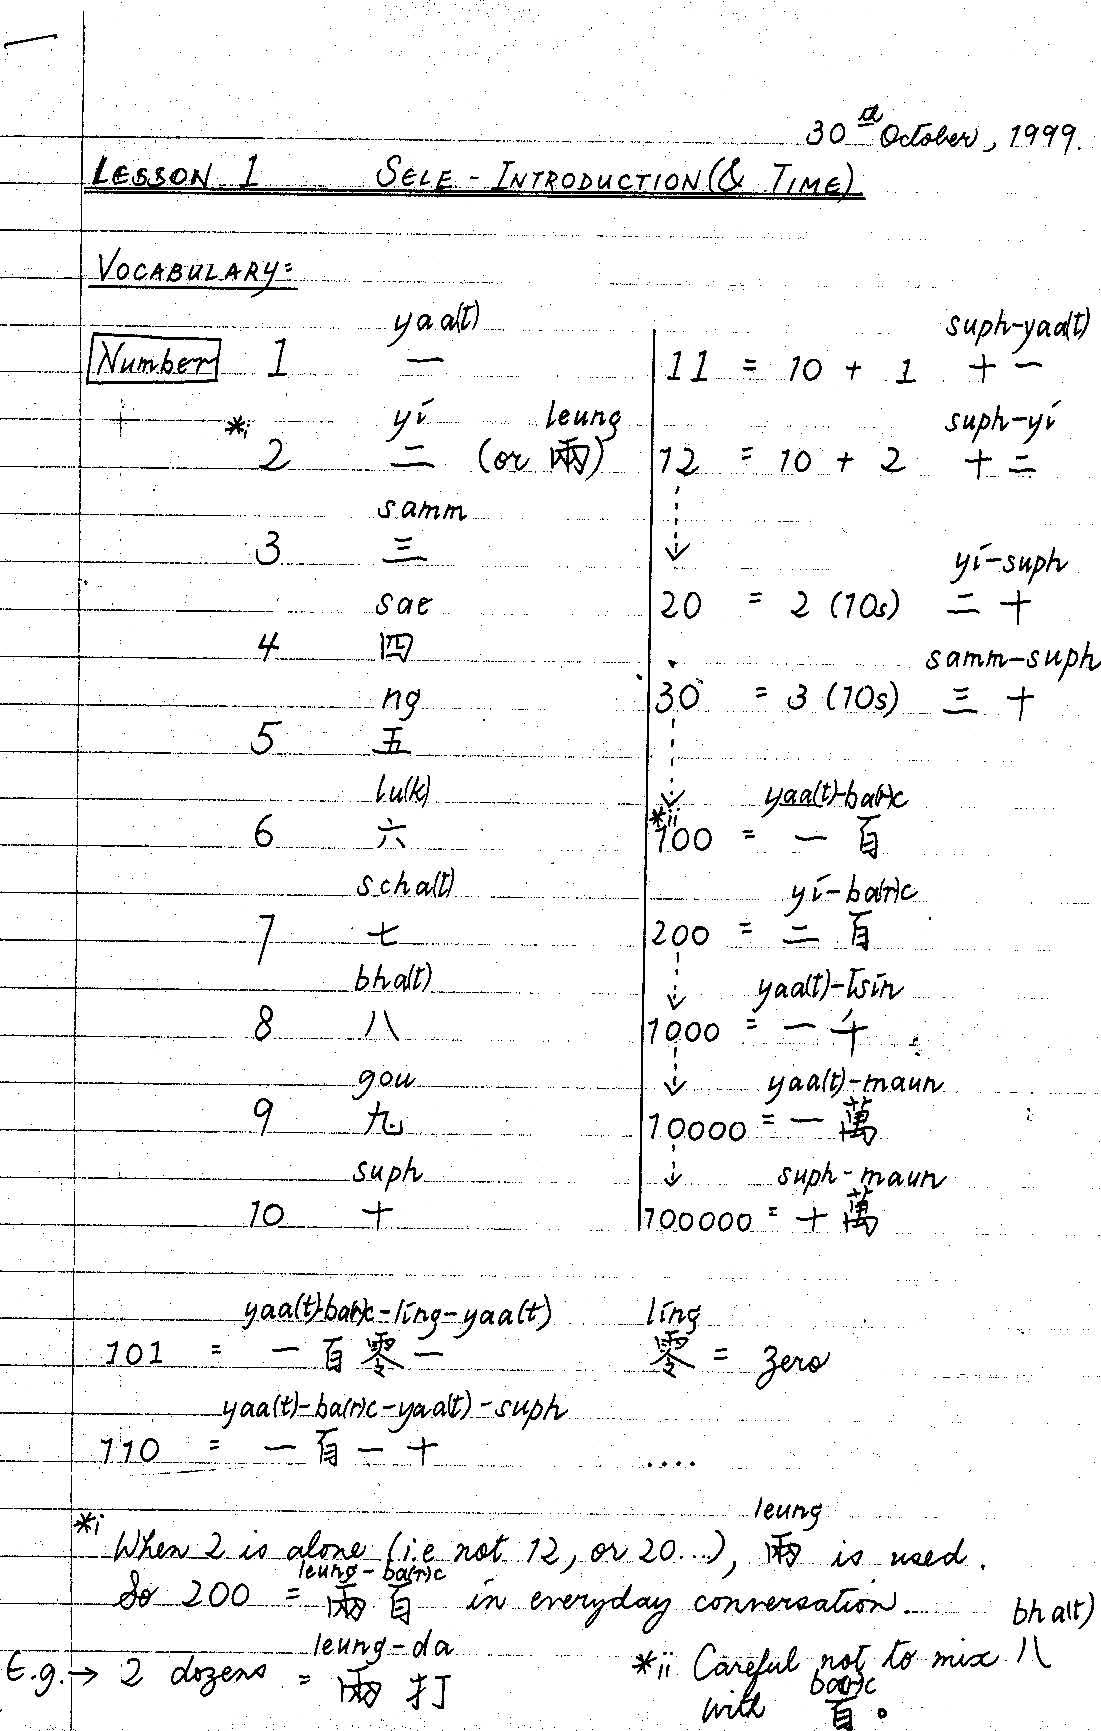 30th October, 1999.
LESSON 1 SELF-INTRODUCTION (& TIME)
VOCABULARY:
yaa(t) suph-yaa(t)
Number 1 一 11 = 10 + 1 十一
yí leung suph-yí
*i 2 二 (or 兩) 12 = 10 + 2 十二
samm
3 三
yí-suph
sae 20 = 2 (10s) 二十
4 四
samm-suph
ng 30 = 3 (10s) 三十
5 五
lu(k) yaa(t)-ba(r)c
6 六 *ii 100 = 一百
scha(t) yí-ba(r)c
7 七 200 = 二百
bha(t) yaa(t)-tsin
8 八 1000 = 一千
gou yaa(t)-maun
9 九 10000 = 一萬
suph suph-maun
10 十 100000 = 十萬
yaa(t)-ba(r)c-líng-yaa(t) líng
101 = 一百零一 零 = zero
yaa(t)-ba(r)c-yaa(t)-suph
110 = 一百一十 ....
leung
*i When 2 is alone (i.e not 12, or 20...), 兩 is used.
leung-ba(r)c
So 200 = 兩百 in everyday conversation.
leung-da bha(t)
E.g. → 2 dozens = 兩打 *ii Careful not to mix 八
ba(r)c
with 百。